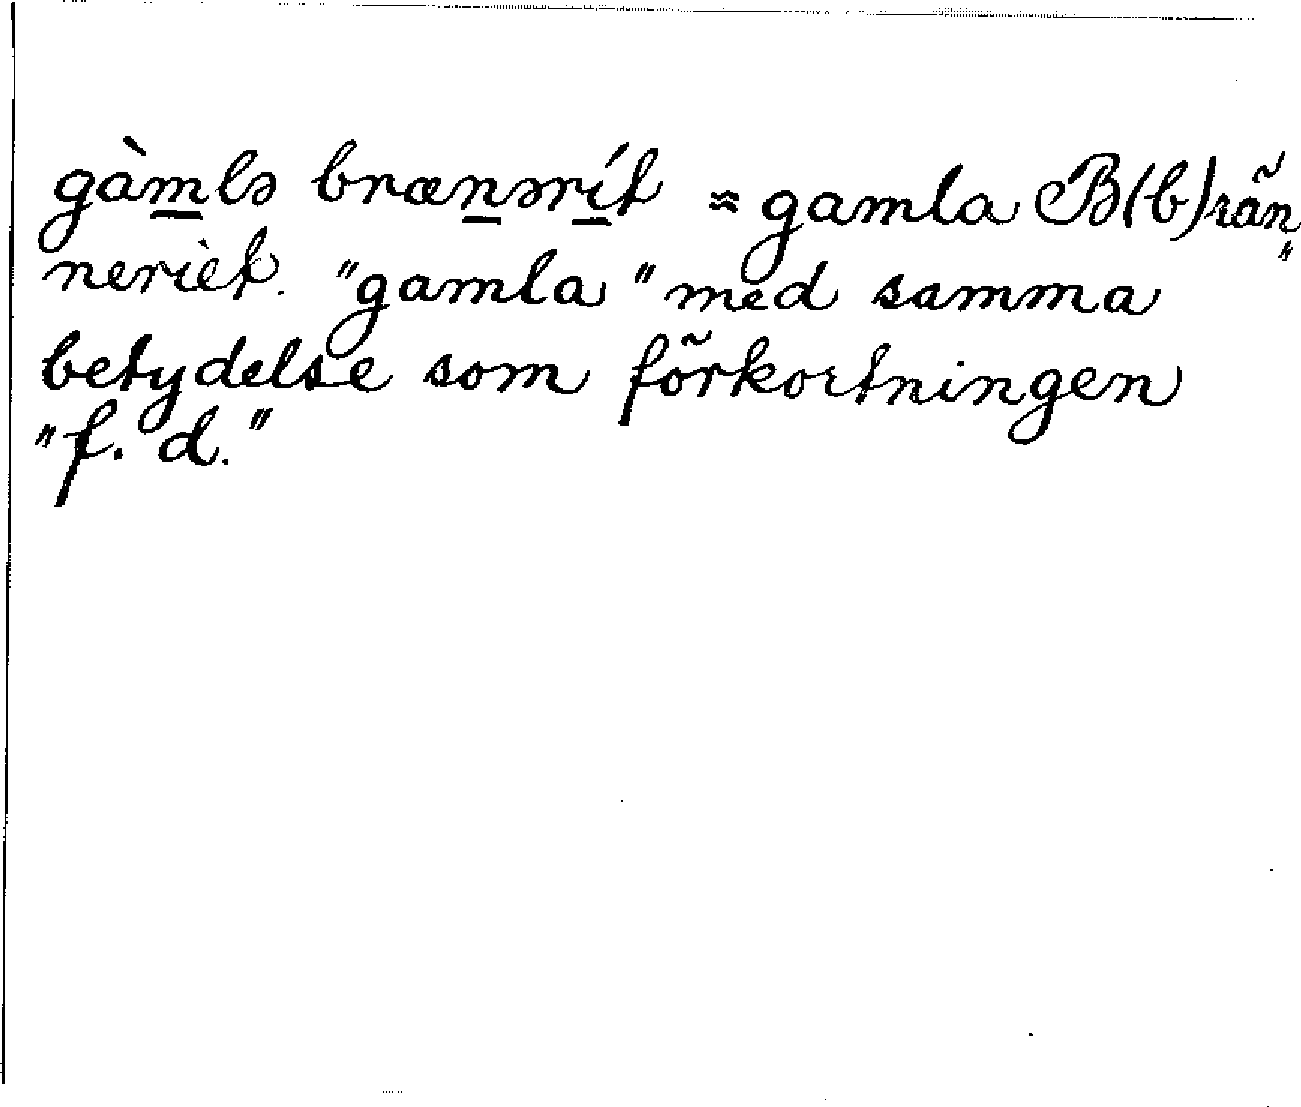 gàm̲lə bræn̲ərí̲t ≈ gamla B(b)rän„
neriet. "gamla" med samma
betydelse som förkortningen
"f. d."